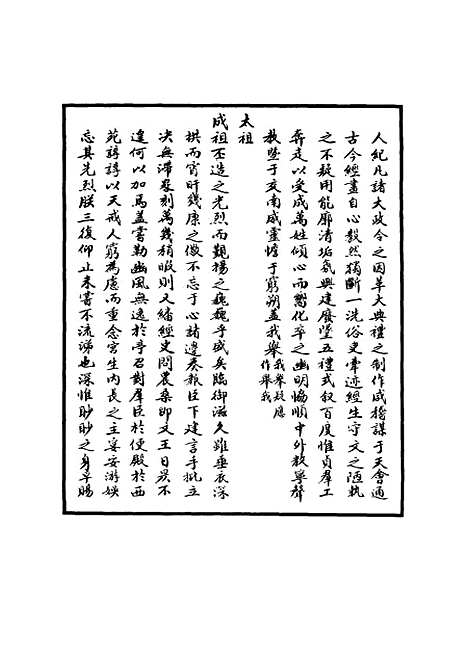 人紀凡諸大政令之因革大典禮之制作咸稽謀于天會通
古今經畫自心毅然獨斷一洗俗吏牽迹經生守文之陋執
之不疑用能廓清垢氛興建廢墜五禮式敘百度惟貞羣工
奔走以受成萬姓傾心而嚮化卒之幽明協順中外敉寧聲
教曁于交南威靈憺于窮朔蓋我舉我舉疑應作舉我
太祖
成祖丕造之光烈而覲揚之巍巍乎盛矣臨御滋久雖垂衣深
拱而宵旰幾康之儆不忘于心諸邊奏報臣下建言手批立
決無滯晷刻萬幾稍暇則又繙經史問農桑卽文王日昃不
遑何以加焉蓋嘗勒豳風無逸於亭召對羣臣於便殿於西
苑諄諄以天戒人窮為慮而重念宮生內長之主妥安游娛
忘其先烈朕三復仰止未嘗不流涕也深惟眇眇之身孚賜